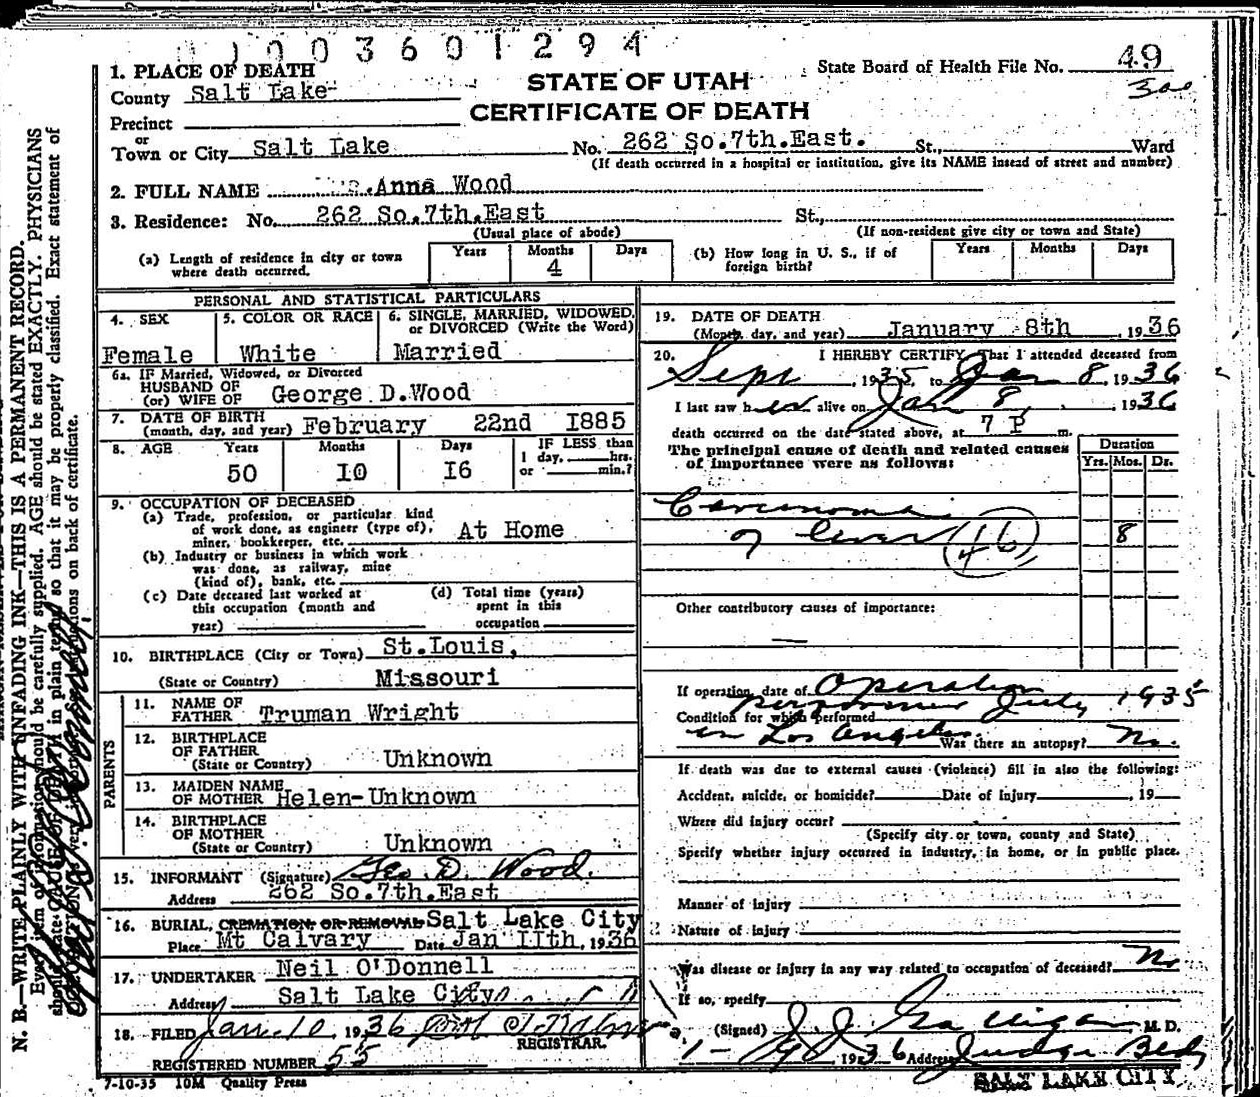 003601294
State Board of Health File No. 49
300
STATE OF UTAH
CERTIFICATE OF DEATH
1. PLACE OF DEATH
County Salt Lake
Precinct
or
Town or City Salt Lake No. 262 So.7th.East. St., Ward
(If death occurred in a hospital or institution, give its NAME instead of street and number)
2. FULL NAME Anna Wood
3. Residence: No. 262 So.7th.East St.,
(Usual place of abode) (If non-resident give city or town and State)
(a) Length of residence in city or town where death occurred. Years Months 4 Days
(b) How long in U. S., if of foreign birth? Years Months Days
PERSONAL AND STATISTICAL PARTICULARS
4. SEX Female
5. COLOR OR RACE White
6. SINGLE, MARRIED, WIDOWED, or DIVORCED (Write the Word) Married
6a. IF Married, Widowed, or Divorced
HUSBAND OF
(or) WIFE OF George D.Wood
7. DATE OF BIRTH
(month, day, and year) February 22nd 1885
8. AGE Years 50 Months 10 Days 16 IF LESS than 1 day, hrs. or min.?
9. OCCUPATION OF DECEASED
(a) Trade, profession, or particular kind of work done, as engineer (type of), miner, bookkeeper, etc. At Home
(b) Industry or business in which work was done, as railway, mine (kind of), bank, etc.
(c) Date deceased last worked at this occupation (month and year)
(d) Total time (years) spent in this occupation
10. BIRTHPLACE (City or Town) St.Louis,
(State or Country) Missouri
PARENTS
11. NAME OF FATHER Truman Wright
12. BIRTHPLACE OF FATHER
(State or Country) Unknown
13. MAIDEN NAME OF MOTHER Helen-Unknown
14. BIRTHPLACE OF MOTHER
(State or Country) Unknown
15. INFORMANT (Signature) Geo. D. Wood.
Address 262 So.7th.East
16. BURIAL, CREMATION OR REMOVAL Salt Lake City
Place Mt Calvary Date Jan 11th, 1936
17. UNDERTAKER Neil O'Donnell
Address Salt Lake City
18. FILED Jan. 10, 1936
REGISTRAR.
REGISTERED NUMBER 55
7-10-35 10M Quality Press
19. DATE OF DEATH
(Month, day, and year) January 8th, 1936
20. I HEREBY CERTIFY, That I attended deceased from
Sept, 1935, to Jan 8, 1936
I last saw her alive on Jan 8, 1936
death occurred on the date stated above, at 7 P m.
The principal cause of death and related causes of importance were as follows:
Duration
Yrs. Mos. Ds.
Carcinoma
of liver (46) 8
Other contributory causes of importance:
If operation, date of Operation
performed July 1935
Condition for which performed
in Los Angeles Was there an autopsy? No.
If death was due to external causes (violence) fill in also the following:
Accident, suicide, or homicide? Date of Injury , 19
Where did injury occur?
(Specify city or town, county and State)
Specify whether injury occurred in industry, in home, or in public place.
Manner of injury
Nature of injury
Was disease or injury in any way related to occupation of deceased? No
If so, specify
(Signed) J J Galligan M. D.
1-9, 1936 Address Judge Bldg
SALT LAKE CITY
N. B.—WRITE PLAINLY WITH UNFADING INK—THIS IS A PERMANENT RECORD.
Every item of information should be carefully supplied. AGE should be stated EXACTLY. PHYSICIANS
should state CAUSE OF DEATH in plain terms so that it may be properly classified. Exact statement of
OCCUPATION is very important. See instructions on back of certificate.